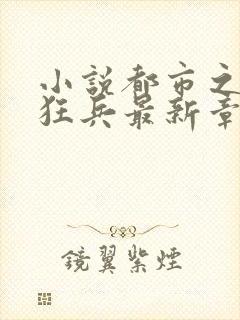 小説都市之
狂兵最新章
鏡翼紫煙